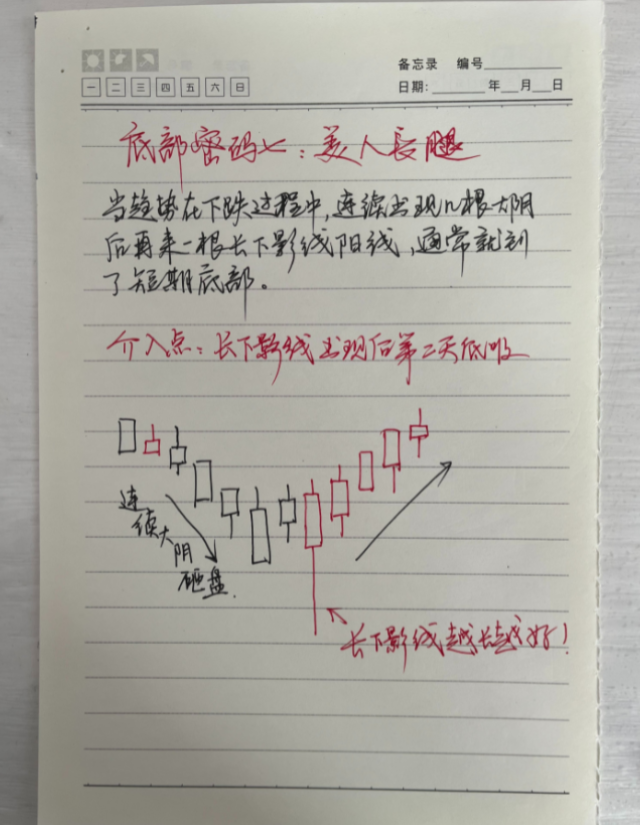 备忘录 编号
一 二 三 四 五 六 日
日期: 年 月 日
底部密码七：美人长腿
当趋势在下跌过程中，连续出现几根大阴
后再来一根长下影线阳线，通常就到
了短期底部。
介入点：长下影线出现后第二天低吸
连续大阴
砸盘.
长下影线越长越好！